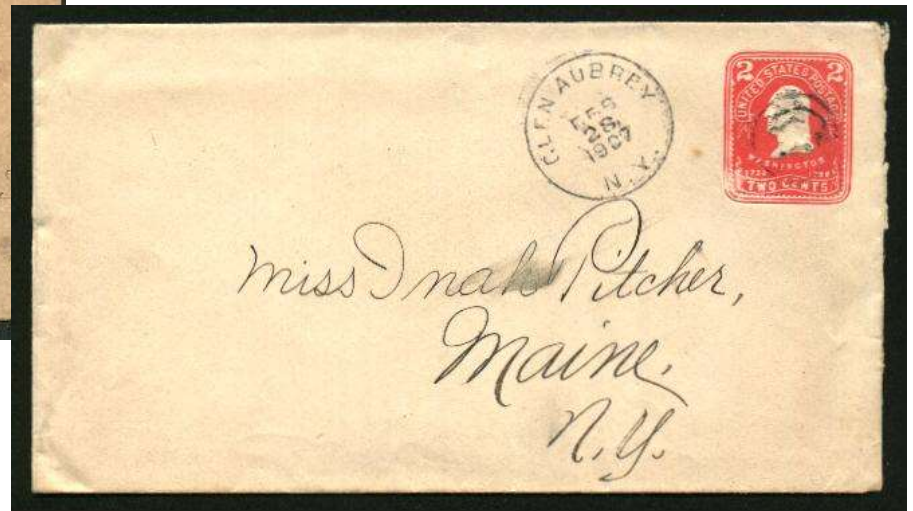 GLEN AUBREY
FEB
28
1907
N.Y.
2 2
UNITED STATES POSTAGE
WASHINGTON
TWO CENTS
Miss Inah Pitcher,
Maine,
N.Y.